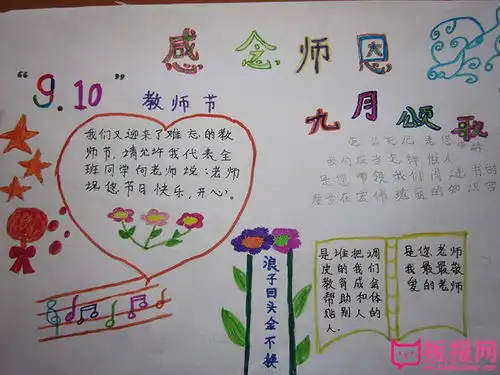 感念师恩
“9.10”
教师节
九月颂歌
我们又迎来了难忘的教
师节,请允许我代表全
班同学向老师说:老师
祝您节日快乐,开心。
我们应当怎样做人
是您带领我们阅读书的
浪子回头金不换
是谁把调
皮的我们
教育成会
帮助和体
贴别人的
人.
是您老师
我最最敬
爱的老师
板报网